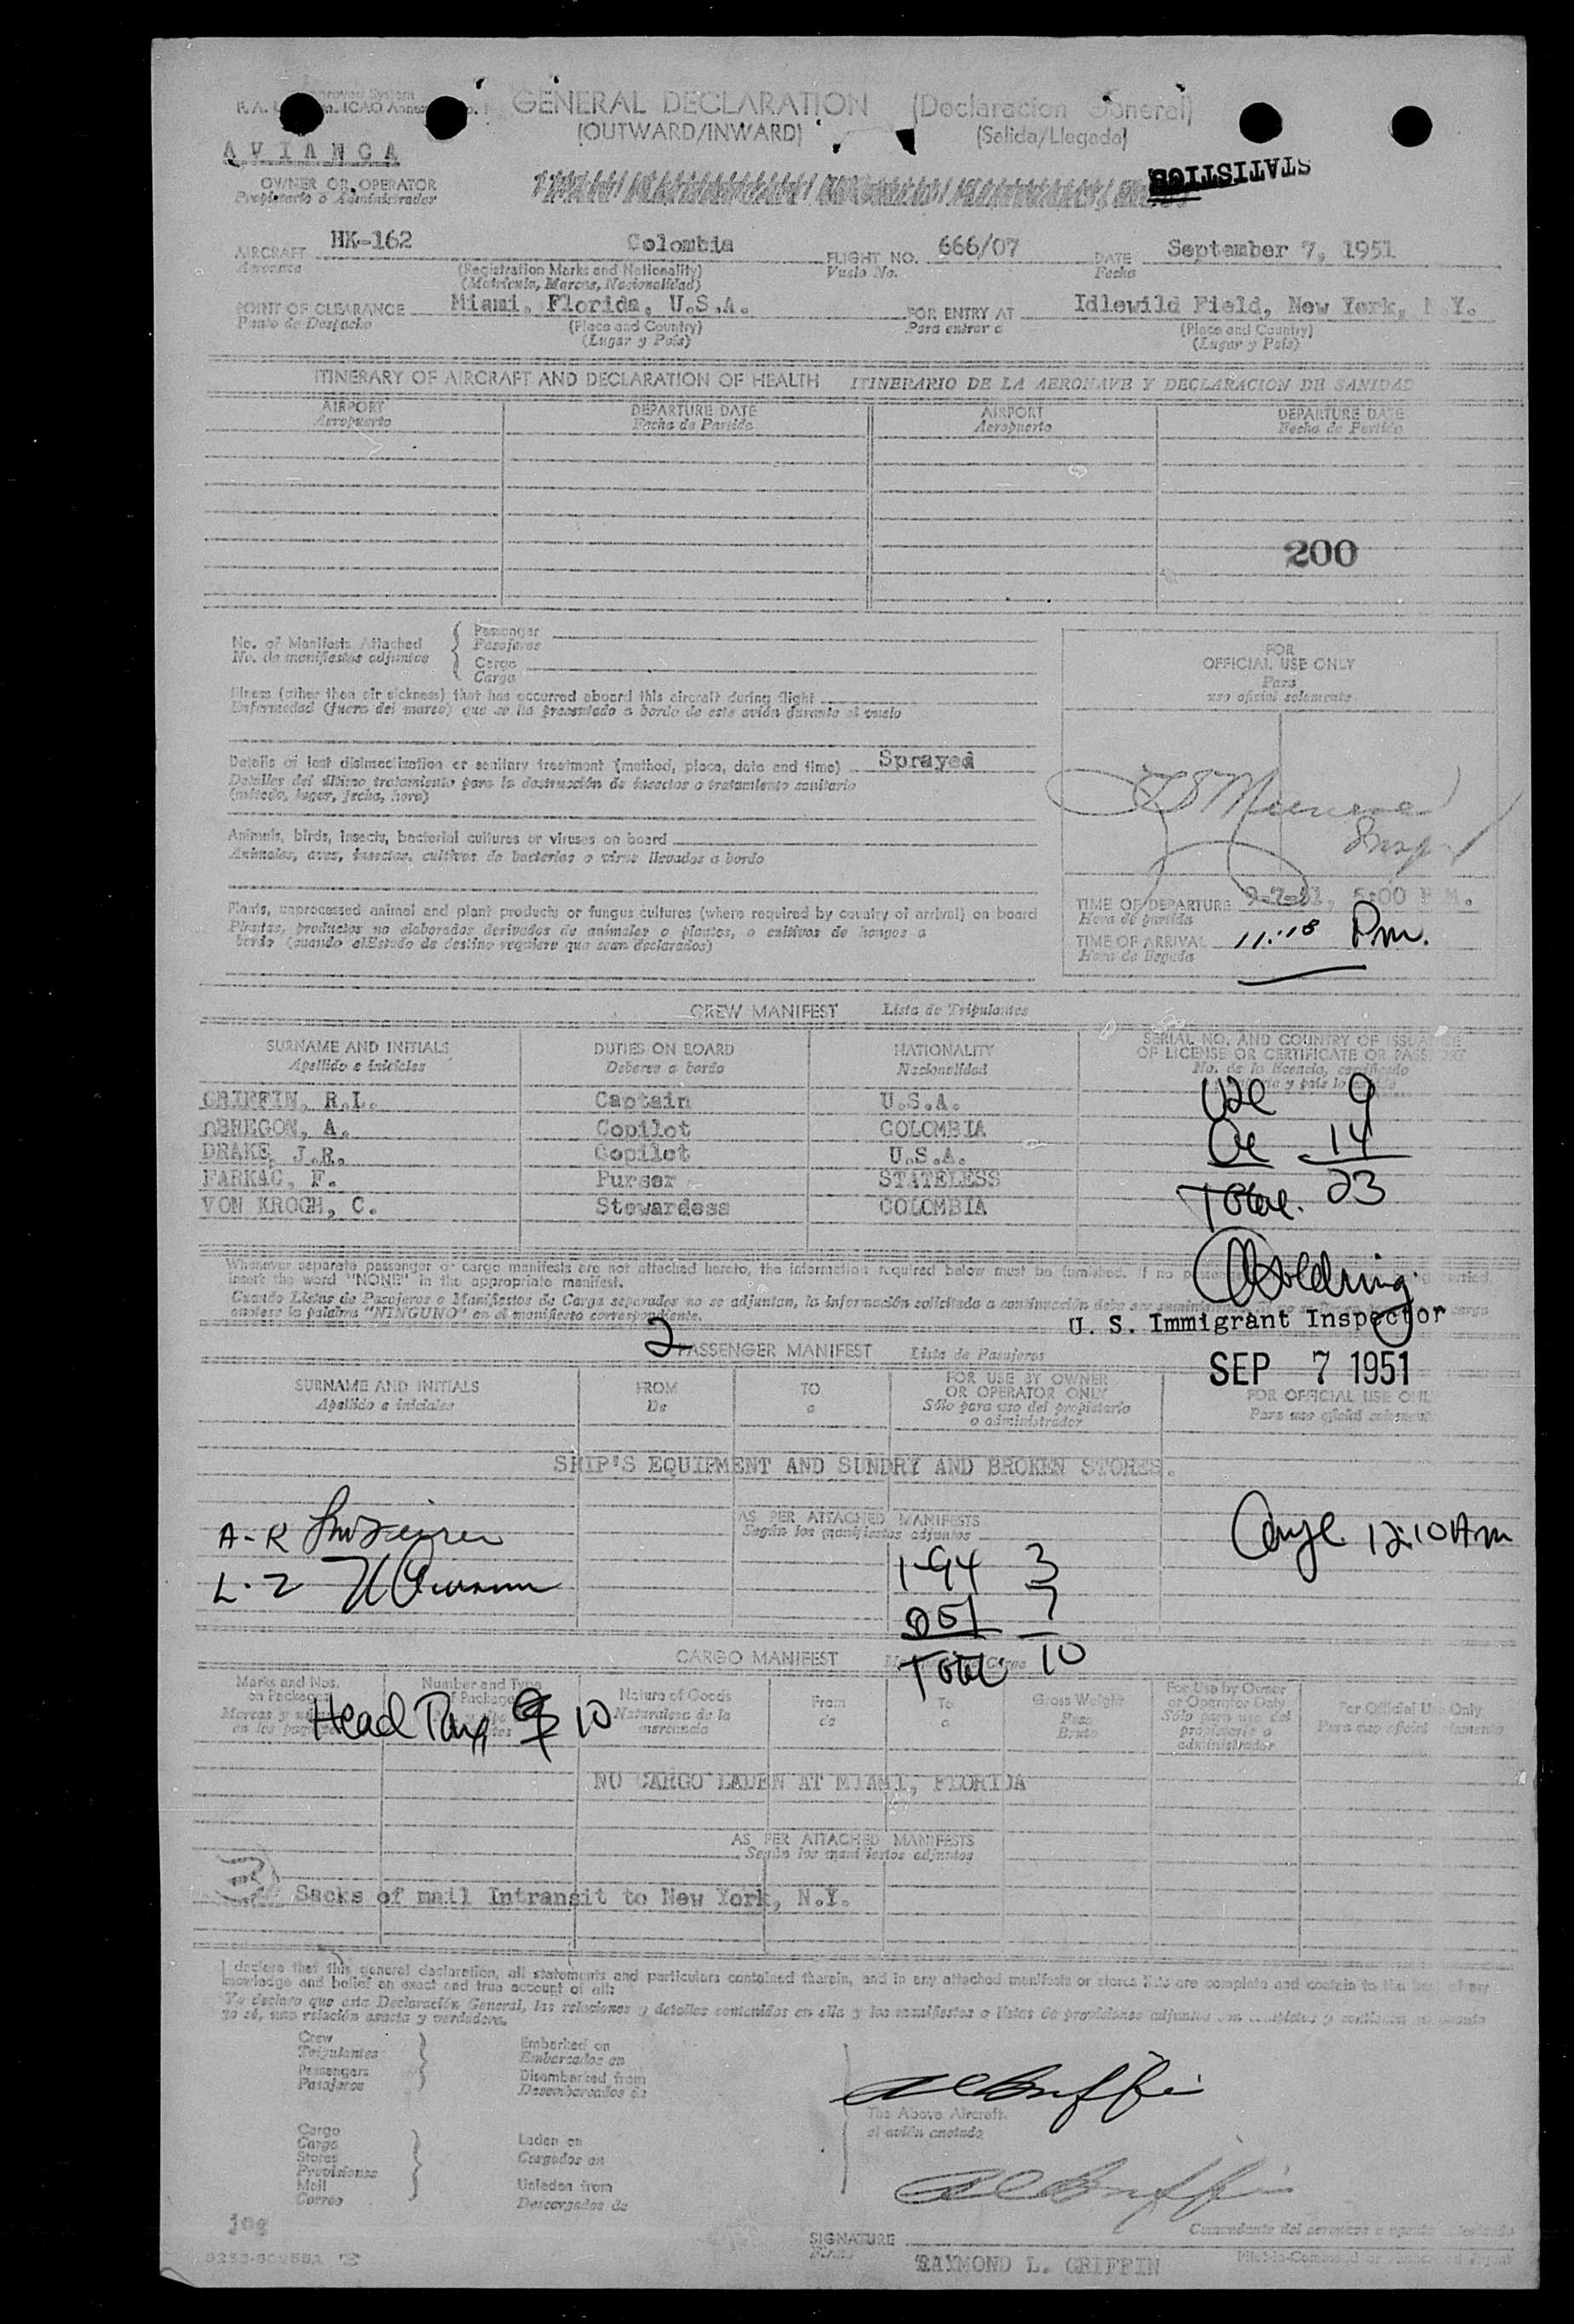 GENERAL DECLARATION (Declaracion General)
(OUTWARD/INWARD) (Salida/Llegada)
AVIANCA
STATISTICS
OWNER OR OPERATOR
Propietario o Administrador
AIRCRAFT HK-162 Colombia FLIGHT NO. 666/07 DATE September 7, 1951
Aeronave (Registration Marks and Nationality) Vuelo No. Fecha
(Matricula, Marcas, Nacionalidad)
POINT OF CLEARANCE Miami, Florida, U.S.A. FOR ENTRY AT Idlewild Field, New York, N.Y.
Punto de Despacho (Place and Country) Para entrar a (Place and Country)
(Lugar y País) (Lugar y País)
ITINERARY OF AIRCRAFT AND DECLARATION OF HEALTH ITINERARIO DE LA AERONAVE Y DECLARACION DE SANIDAD
AIRPORT DEPARTURE DATE AIRPORT DEPARTURE DATE
Aeropuerto Fecha de Partida Aeropuerto Fecha de Partida
200
No. of Manifests Attached
No. de manifiestos adjuntos
Passenger
Pasajeros
Cargo
Carga
FOR
OFFICIAL USE ONLY
Para
uso oficial solamente
Illness (other than air sickness) that has occurred aboard this aircraft during flight
Enfermedad (fuera del mareo) que se ha presentado a bordo de este avión durante el vuelo
Details of last disinsectization or sanitary treatment (method, place, date and time) Sprayed
Detalles del último tratamiento para la destrucción de insectos o tratamiento sanitario
(método, lugar, fecha, hora)
Insp
Animals, birds, insects, bacterial cultures or viruses on board
Animales, aves, insectos, cultivos de bacterias o virus llevados a bordo
TIME OF DEPARTURE 9-7-51, 5:00 P.M.
Hora de partida
TIME OF ARRIVAL 11:18 Pm.
Hora de llegada
Plants, unprocessed animal and plant products or fungus cultures (where required by country of arrival) on board
Plantas, productos no elaborados derivados de animales o plantas, o cultivos de hongos a
bordo (cuando el Estado de destino requiere que sean declarados)
CREW MANIFEST Lista de Tripulantes
SURNAME AND INITIALS DUTIES ON BOARD NATIONALITY SERIAL NO. AND COUNTRY OF ISSUANCE
OF LICENSE OR CERTIFICATE OR PASSPORT
Apellido e iniciales Deberes a bordo Nacionalidad No. de la licencia, certificado
GRIFFIN, R.L. Captain U.S.A.
OBREGON, A. Copilot COLOMBIA
DRAKE, J.R. Copilot U.S.A.
FARKAC, F. Purser STATELESS
VON KROGH, C. Stewardess COLOMBIA
9
14
Total. 23
Whenever separate passenger or cargo manifests are not attached hereto, the information required below must be furnished. If no
insert the word "NONE" in the appropriate manifest.
Cuando Listas de Pasajeros o Manifiestos de Carga separados no se adjuntan, la información solicitada a continuación debe ser
anótese la palabra "NINGUNO" en el manifiesto correspondiente.
U. S. Immigrant Inspector
SEP 7 1951
2
PASSENGER MANIFEST Lista de Pasajeros
SURNAME AND INITIALS FROM TO FOR USE BY OWNER OR OPERATOR ONLY FOR OFFICIAL USE ONLY
Apellido e iniciales De a Sólo para uso del propietario o administrador Para uso oficial solamente
SHIP'S EQUIPMENT AND SUNDRY AND BROKEN STORES.
AS PER ATTACHED MANIFESTS
Según los manifiestos adjuntos
A-R
L-2
12:10 Am
1-94 3
7
Total 10
CARGO MANIFEST
Marks and Nos. on Packages Number and Type of Packages Nature of Goods From To Gross Weight For Use by Owner or Operator Only For Official Use Only
Naturaleza de la mercancia de a Peso Bruto Sólo para uso del propietario o administrador Para uso oficial solamente
Head Tax 10
NO CARGO LADEN AT MIAMI, FLORIDA
AS PER ATTACHED MANIFESTS
Según los manifiestos adjuntos
Sacks of mail Intransit to New York, N.Y.
I declare that this general declaration, all statements and particulars contained therein, and in any attached manifests or stores lists are complete and contain to the best of my
knowledge and belief an exact and true account of all:
Yo declaro que esta Declaración General, las relaciones y detalles contenidos en ella y los manifiestos o listas de provisiones adjuntos son completos y contienen
yo sé, una relación exacta y verdadera.
Crew
Tripulantes
Passengers
Pasajeros
Embarked on
Embarcados en
Disembarked from
Desembarcados de
The Above Aircraft.
el avión anotado
Cargo
Carga
Stores
Provisiones
Mail
Correo
Laden on
Cargados en
Unladen from
Descargados de
jeg
SIGNATURE
Firma
RAYMOND L. GRIFFIN